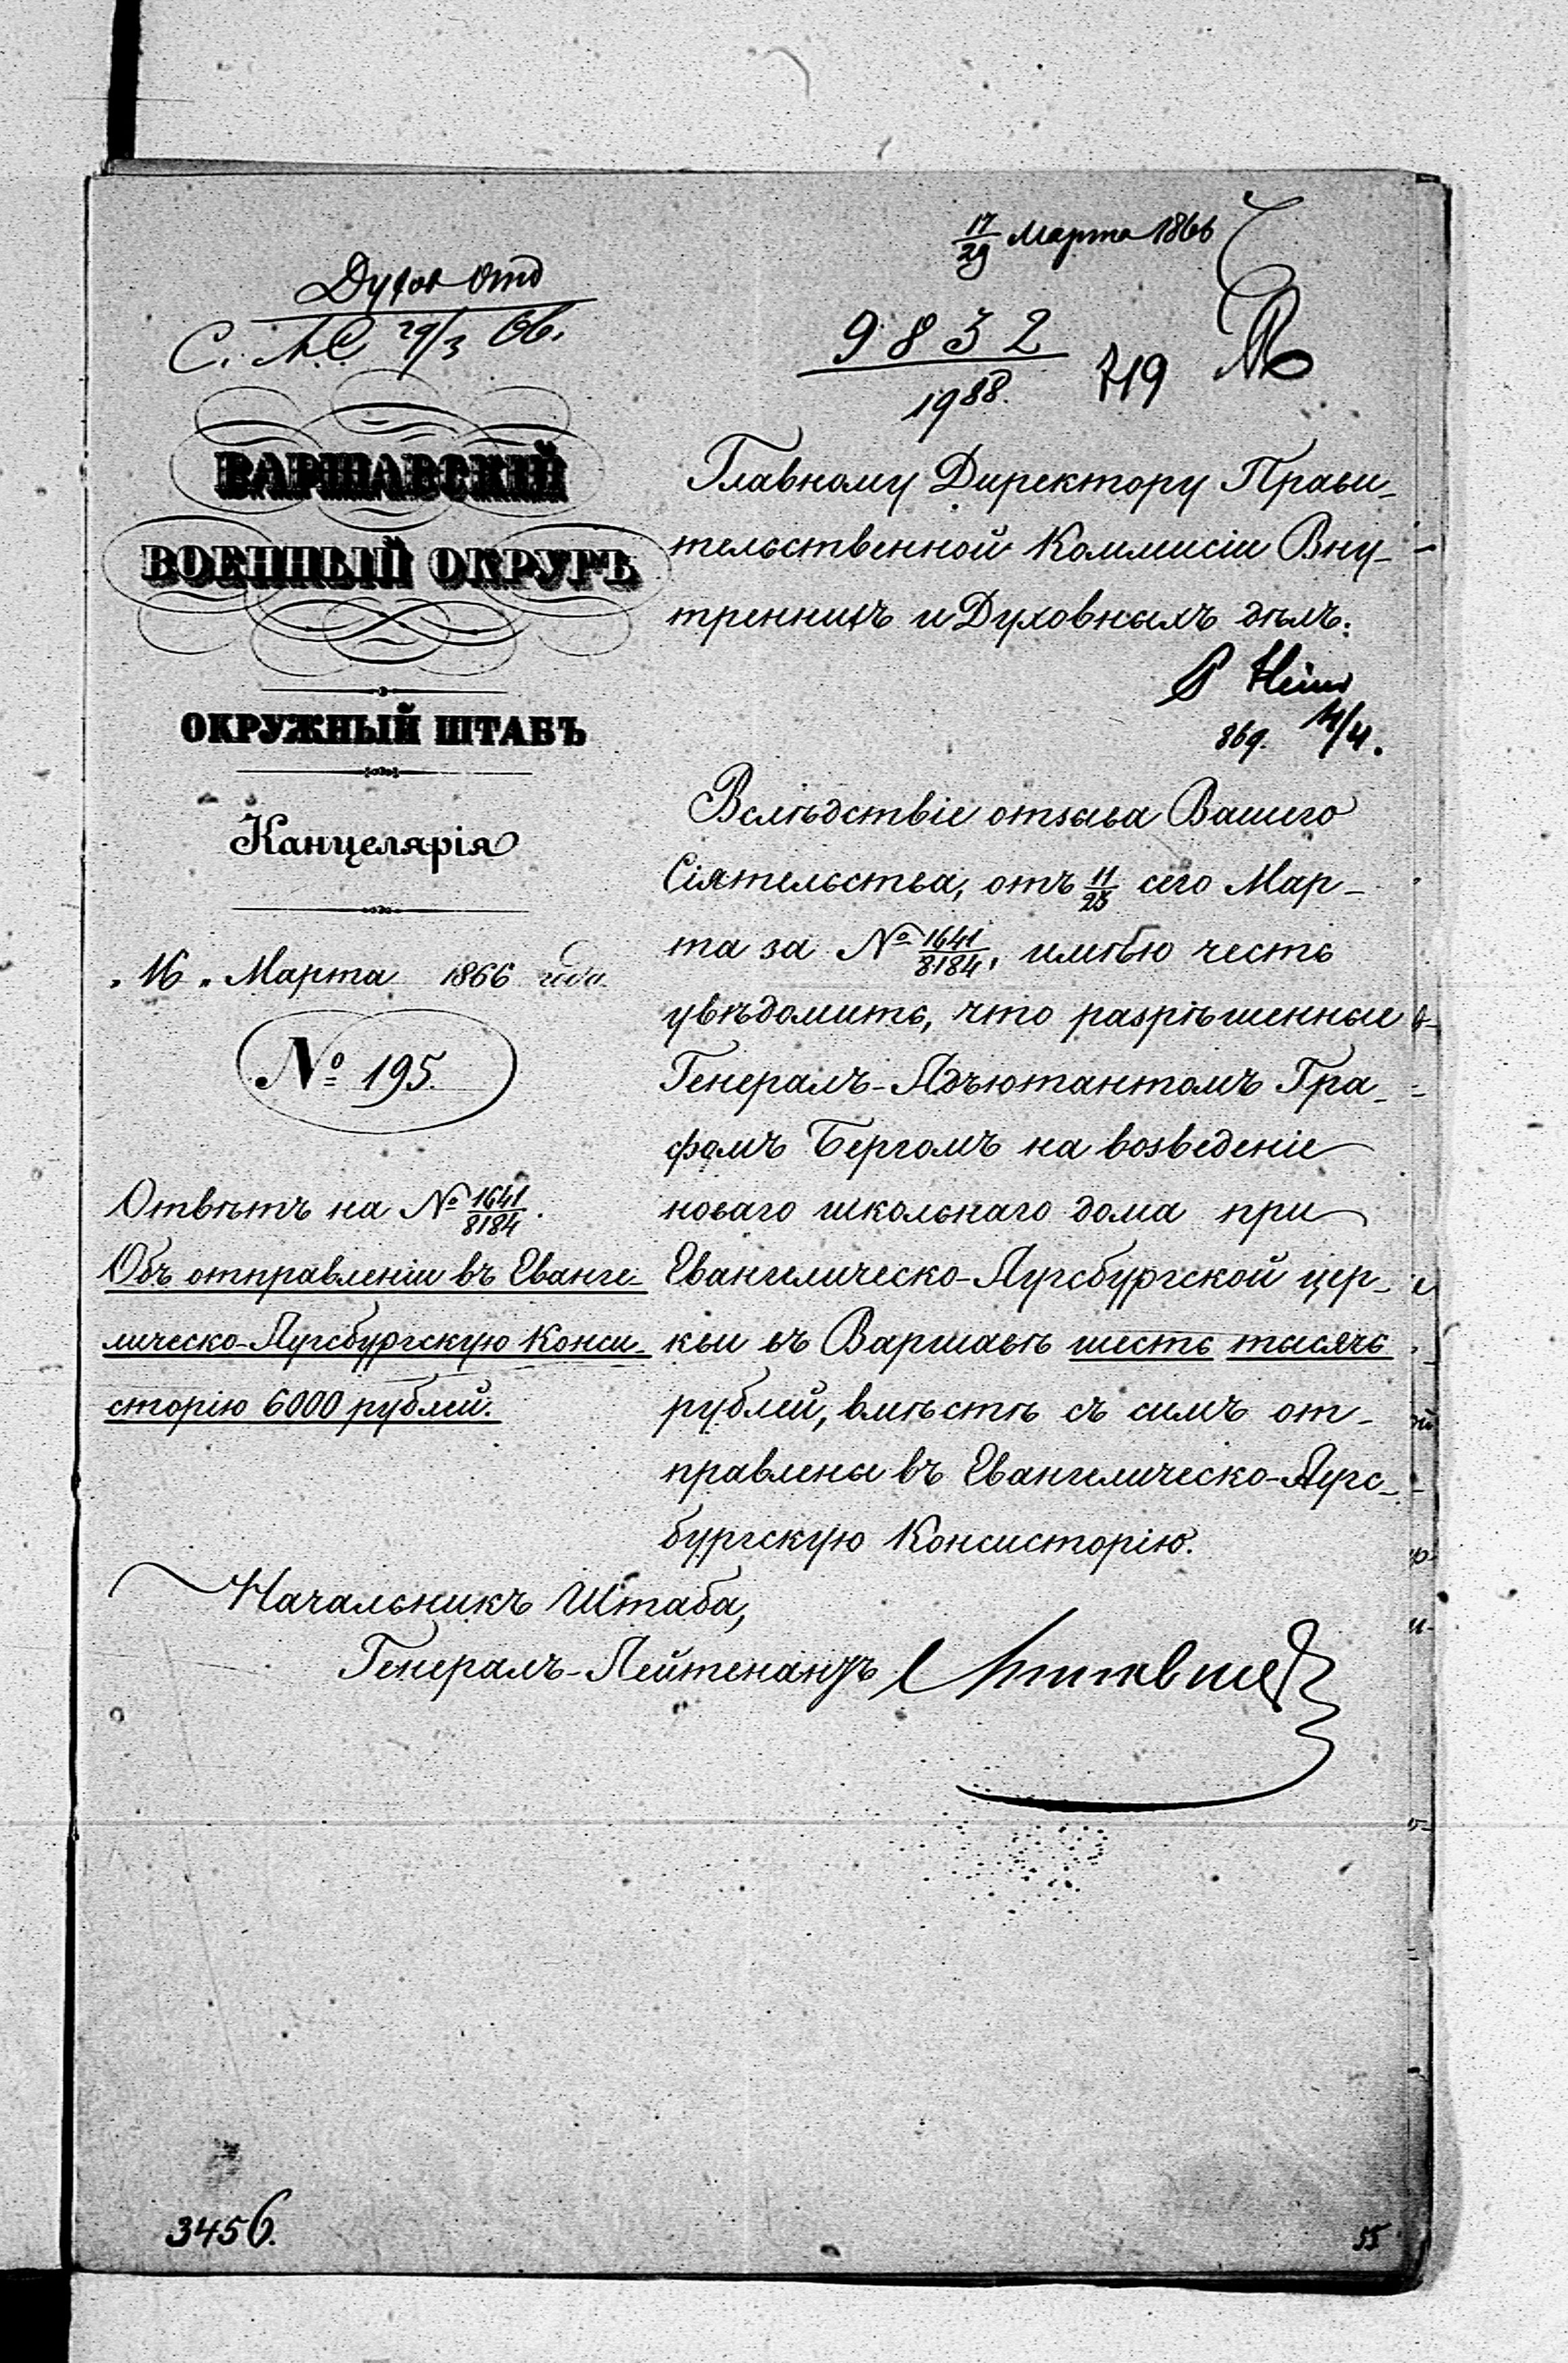 17/29 Марта 1866
Духов Отд
С. 29/3 66.
9832
1988.
719
ВАРШАВСКІЙ
ВОЕННЫЙ ОКРУГЪ
ОКРУЖНЫЙ ШТАБЪ
Канцелярія
„16„ Марта 1866 года
№ 195.
Отвѣтъ на № 1641/8184.
Объ отправленіи въ Еванге-
лическо-Аугсбургскую Конси-
сторію 6000 рублей.
Главному Директору Прави-
тельственной Коммисіи Вну-
треннихъ и Духовныхъ дѣлъ.
869. 14/4.
Вслѣдствіе отзыва Вашего
Сіятельства, отъ 11/23 сего Мар-
та за № 1641/8184, имѣю честь
увѣдомить, что разрѣшенные
Генералъ-Адъютантомъ Гра-
фомъ Бергомъ на возведеніе
новаго школьнаго дома при
Евангелическо-Аугсбургской цер-
кви въ Варшавѣ шесть тысячъ
рублей, вмѣстѣ съ симъ от-
правлены въ Евангелическо-Аугс-
бургскую Консисторію.
Начальникъ Штаба,
Генералъ-Лейтенантъ
3456.
55